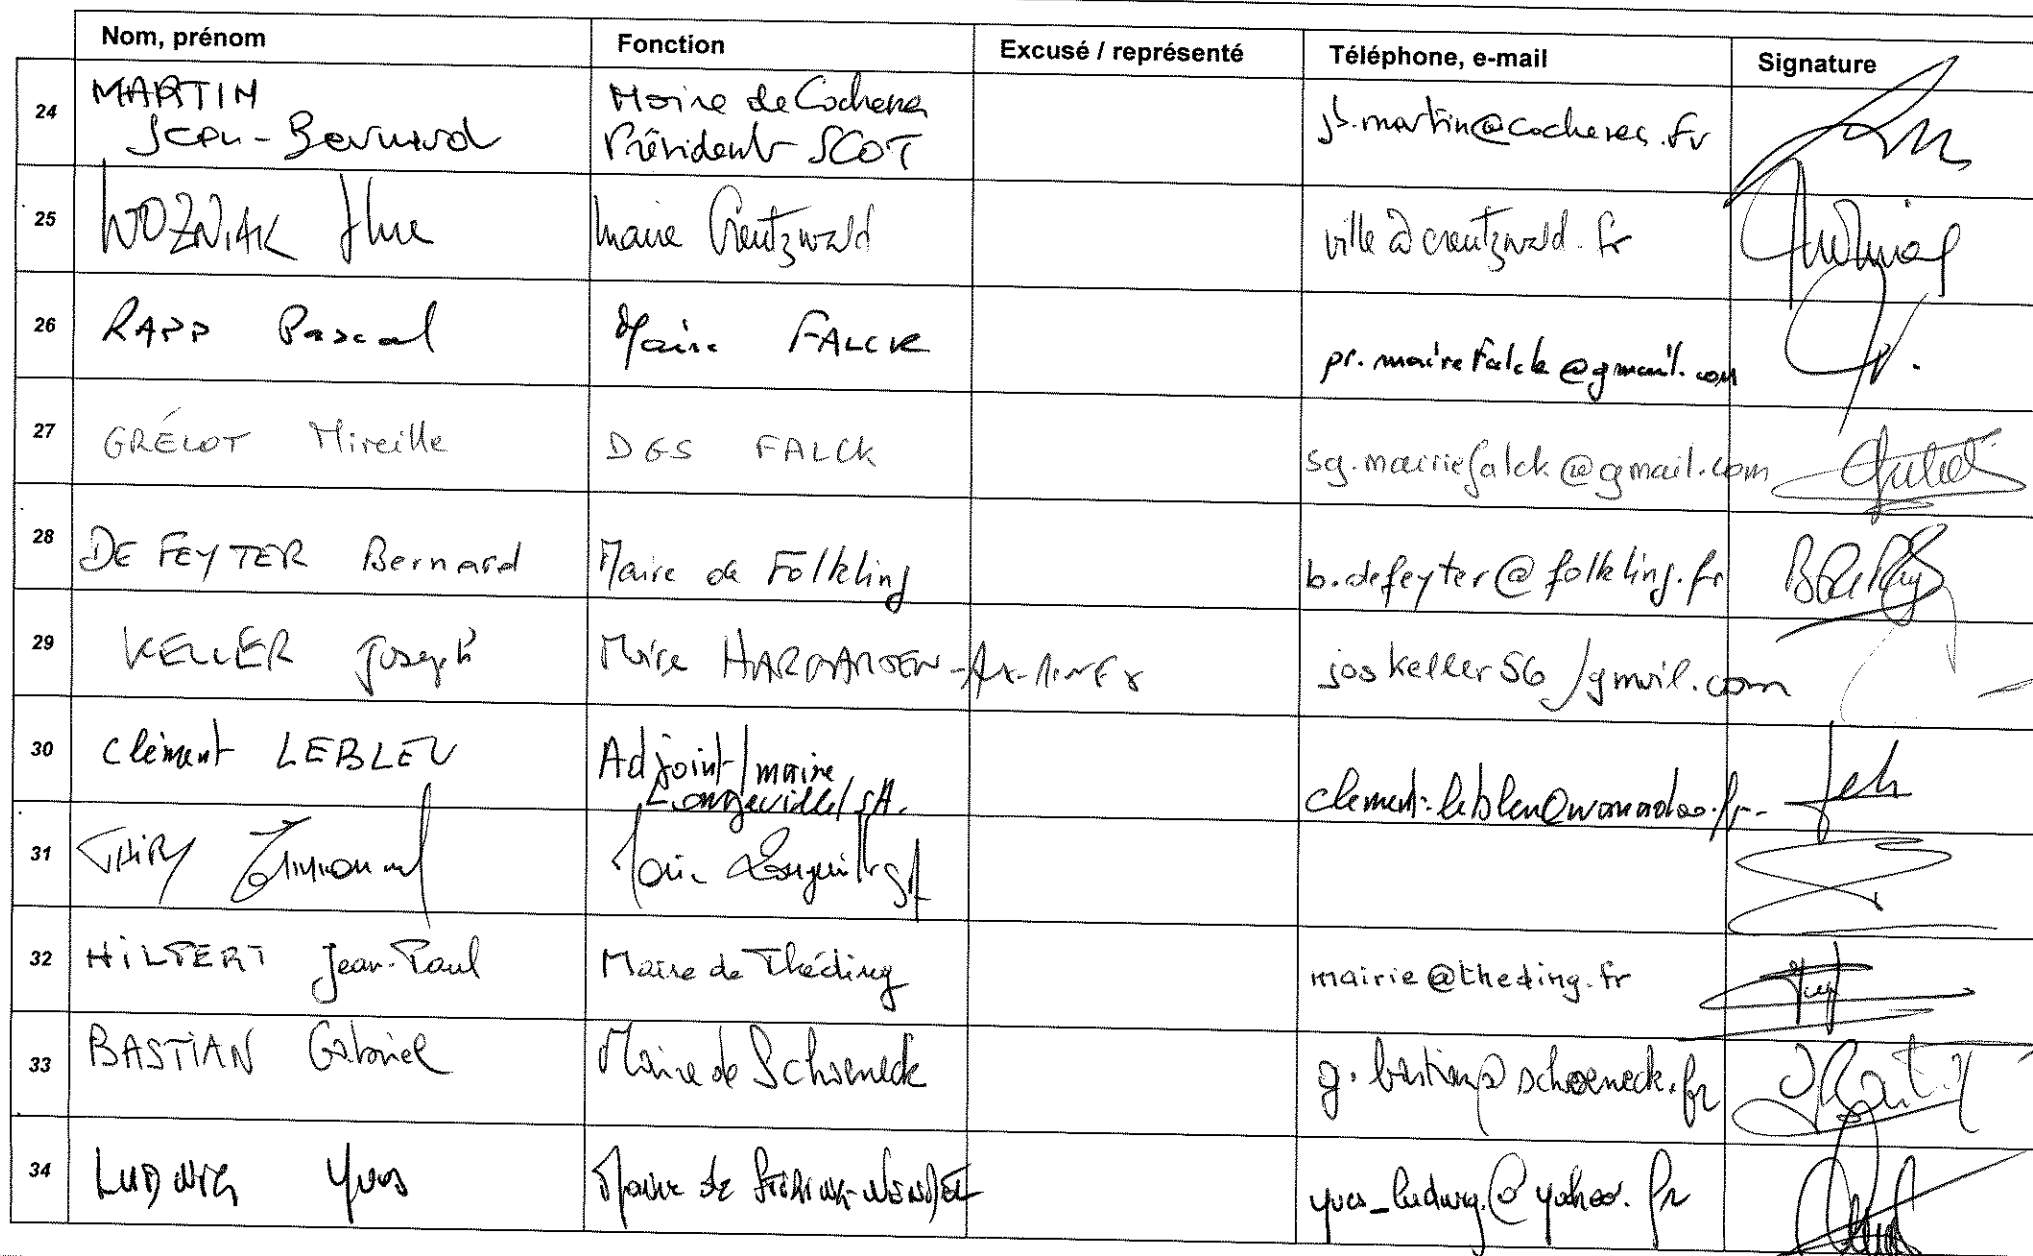 Nom, prénom Fonction Excusé / représenté Téléphone, e-mail Signature
24 MARTIN Maire de Cocheren jb.martin@cocheren.fr
Jean-Bernard Président SCOT
25 WOZNIAK Maire Creutzwald ville@creutzwald.fr
26 RAPP Pascal Maire FALCK pr.mairefalck@gmail.com
27 GRÉLOT Mireille DGS FALCK sg.mairiefalck@gmail.com
28 DE FEYTER Bernard Maire de Folkling b.defeyter@folkling.fr
29 KELLER Joseph Maire joskeller56/gmail.com
30 Clément LEBLEU Adjoint/maire clement.lebleu@wanadoo.fr
Longeville/SA.
31 THIRY Emmanuel Maire
32 HILPERT Jean-Paul Maire de Théding mairie@theding.fr
33 BASTIAN Gabriel Maire de Schoeneck g.bastian@schoeneck.fr
34 LUDWIG Yves Maire de STIRING-WENDEL yves_ludwig@yahoo.fr